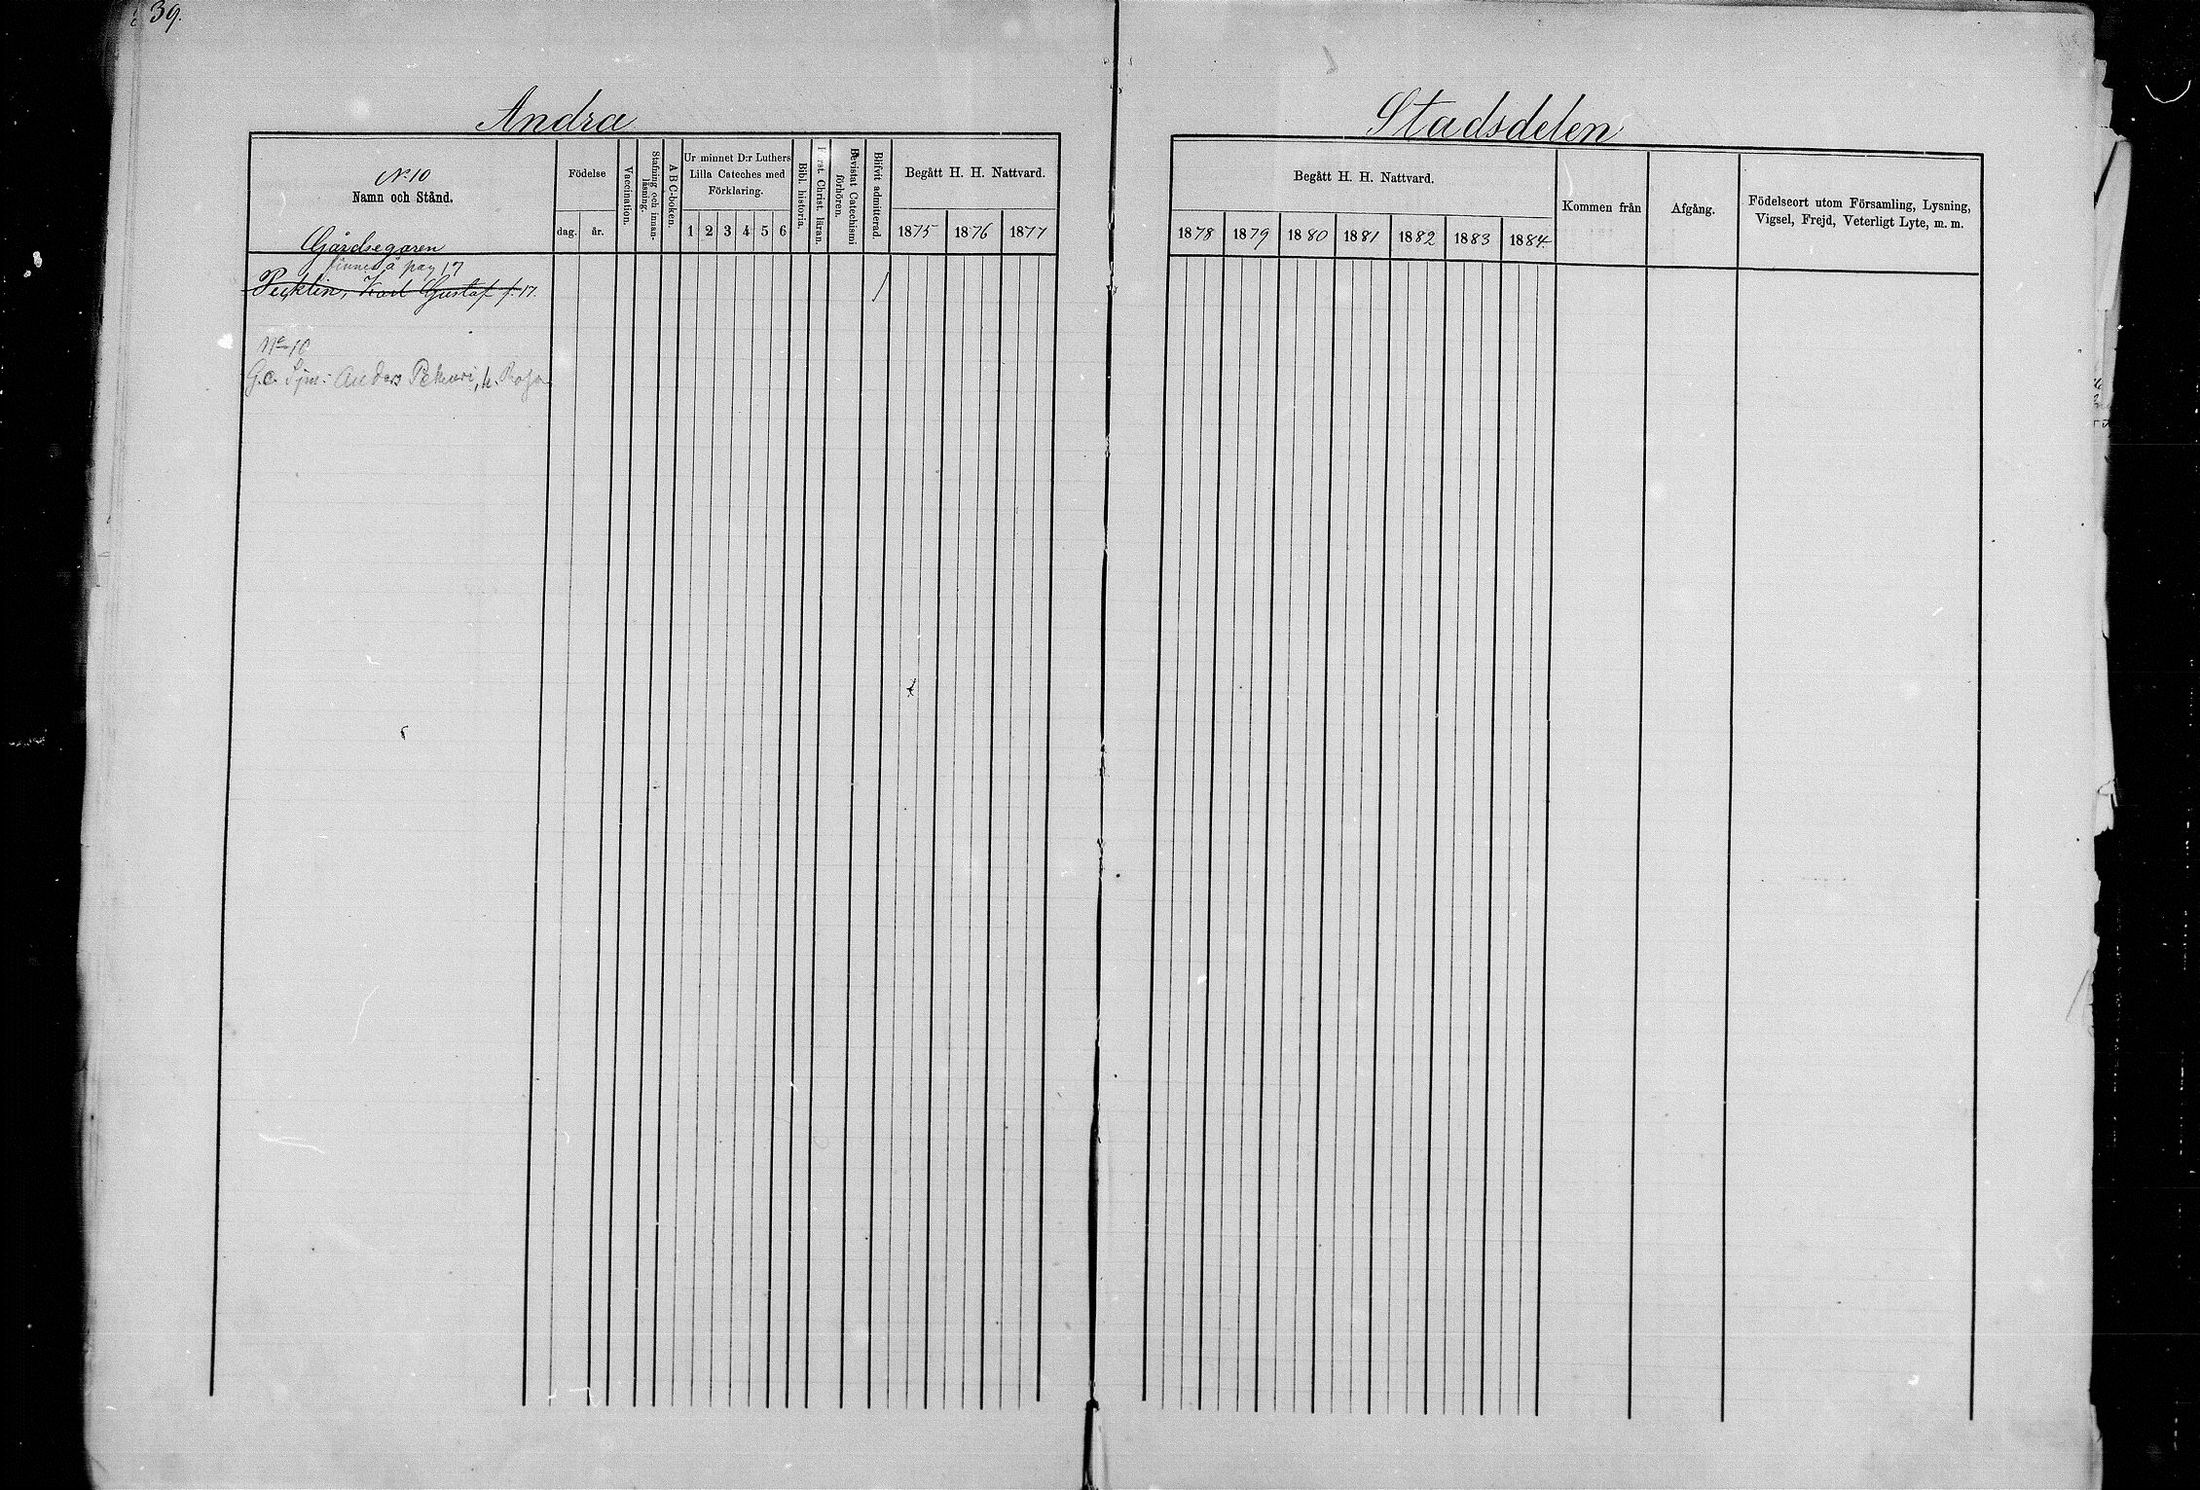 39.
Andra
Stadsdelen
No 10
Namn och Stånd.
Födelse
dag.
år.
Vaccination.
Stafning och innan-
läsning.
A B C-boken.
Ur minnet D:r Luthers
Lilla Cateches med
Förklaring.
1 2 3 4 5 6
Bibl. historia.
Först. Christ. läran.
Bevistat Catechismi
förhören.
Blifvit admitterad.
Begått H. H. Nattvard.
1875 1876 1877
Begått H. H. Nattvard.
1878 1879 1880 1881 1882 1883 1884.
Kommen från
Afgång.
Födelseort utom Församling, Lysning,
Vigsel, Frejd, Veterligt Lyte, m. m.
Gårdsegaren
finnes å pag 17
Karl Gustaf p. 17.
No 10
Anders